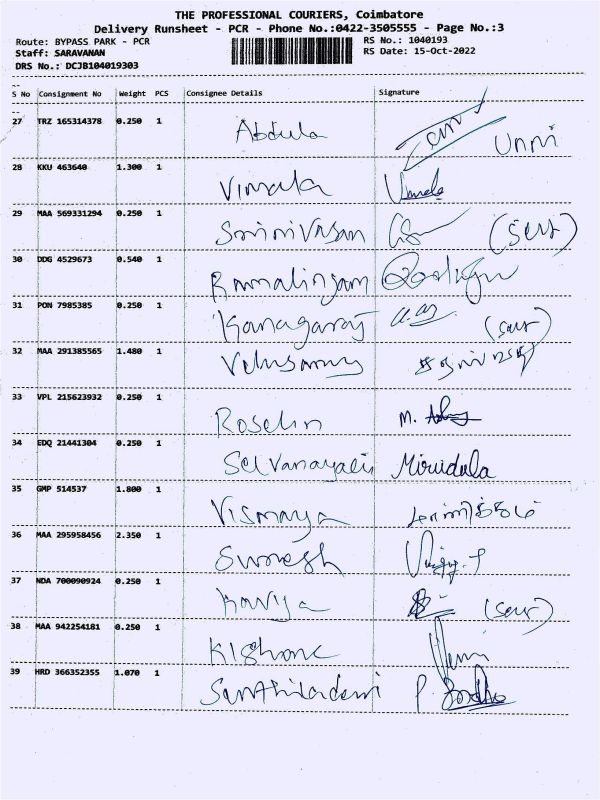 THE PROFESSIONAL COURIERS, Coimbatore
Delivery Runsheet - PCR - Phone No.:0422-3505555 - Page No.:3
Route: BYPASS PARK - PCR
RS No.: 1040193
Staff: SARAVANAN
RS Date: 15-Oct-2022
DRS No.: DCJB104019303
S No Consignment No Weight PCS Consignee Details Signature
27 TRZ 165314378 0.250 1 Abdula Unni
28 KKU 463640 1.300 1 Vimala Vimala
29 MAA 569331294 0.250 1 Srinivasan
30 DDG 4529673 0.540 1 Ramalingam
31 PON 7985385 0.250 1 Kanagaraj
32 MAA 291385565 1.480 1 Velusamy
33 VPL 215623932 0.250 1 Roselin M.
34 EDQ 21441304 0.250 1 Selvanayaki Mirudula
35 GMP 514537 1.800 1 Vismaya
36 MAA 295958456 2.350 1 Suresh
37 NDA 700090924 0.250 1 Kaviya
38 MAA 942254181 0.250 1 Kishore
39 HRD 366352355 1.070 1 P.